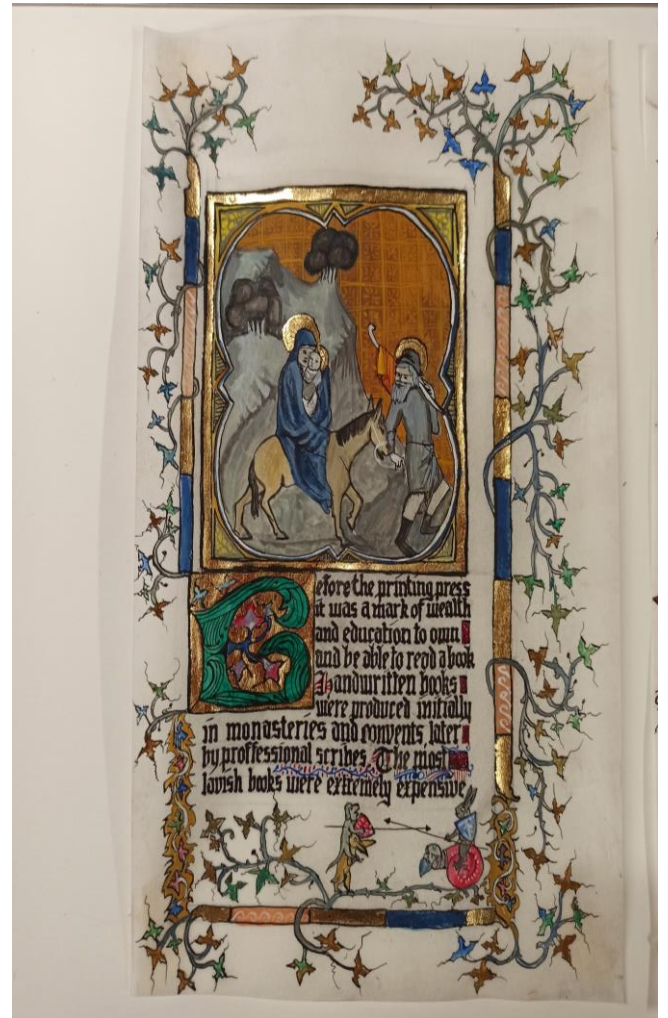 Before the printing press
it was a mark of wealth
and education to own
and be able to read a book
Handwritten books
were produced initially
in monasteries and convents, later
by proffessional scribes. The most
lavish books were extremely expensive